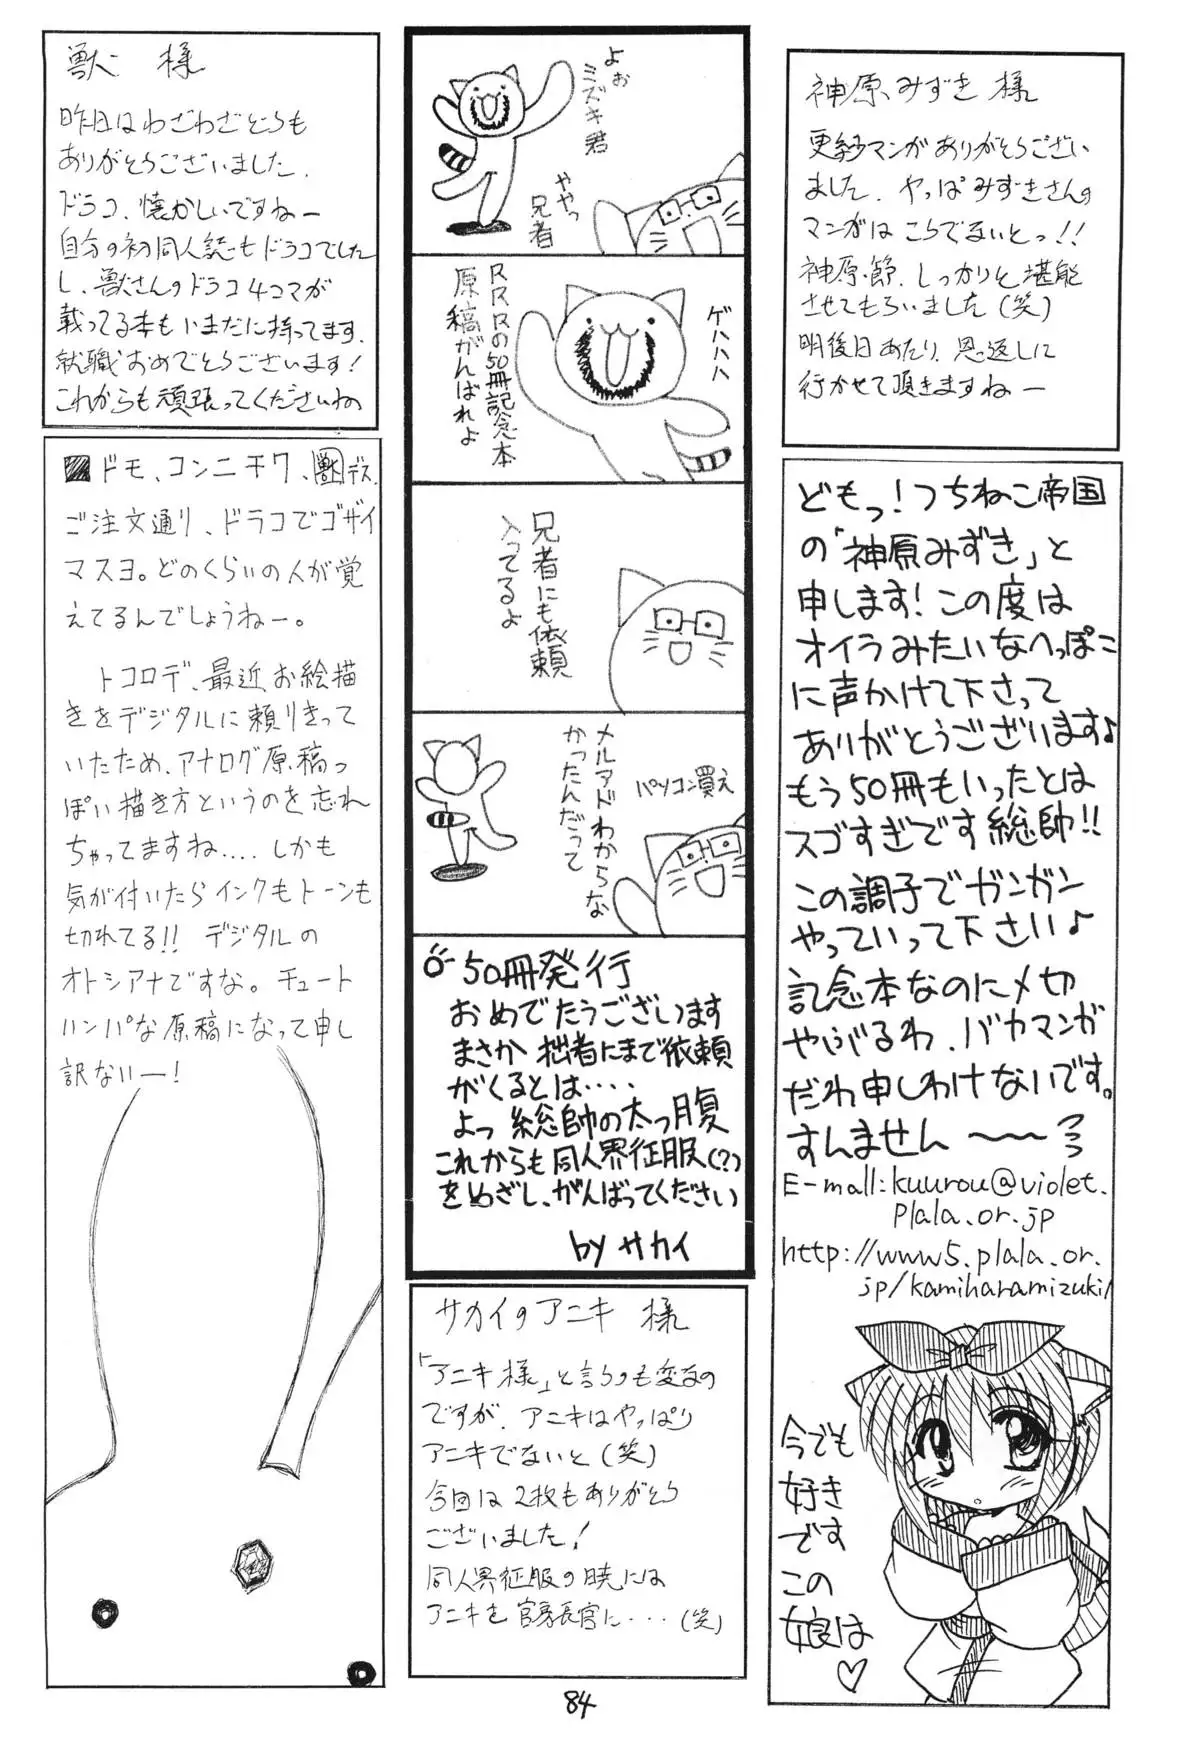 獣 様
昨日はわざわざどうも
ありがとうございました.
ドラコ、懐かしいですねー
自分の初同人誌もドラコでした
し、獣さんのドラコ4コマが
載ってる本もいまだに持ってます.
就職おめでとうございます!
これからも頑張ってくださいね
ドモ、コンニチワ、獣デス.
ご注文通り、ドラコでゴザイ
マスヨ。どのくらいの人が覚
えてるんでしょうねー。
トコロデ、最近お絵描
きをデジタルに頼りきって
いたため、アナログ原稿っ
ぽい描き方というのを忘れ
ちゃってますね.... しかも
気が付いたらインクもトーンも
切れてる!! デジタルの
オトシアナですな。チュート
ハンパな原稿になって申し
訳ないー!
よぉ
ミズキ君
ややっ
兄者
ゲハハハ
RRRの50冊記念本
原稿がんばれよ
兄者にも依頼
入ってるよ
メルアドわからな
かったんだって
パソコン買え
50冊発行
おめでたうございます
まさか 拙者にまで依頼
がくるとは‥‥
よっ 総帥の太っ腹
これからも同人界征服(?)
をめざし、がんばってください
by サカイ
サカイのアニキ 様
「アニキ様」と言うのも変なの
ですが、アニキはやっぱり
アニキでないと(笑)
今回は2枚もありがとう
ございました!
同人界征服の暁には
アニキを官房長官に・・・(笑)
神原みずき 様
更紗マンガありがとうござい
ました. やっぱみずきさんの
マンガはこうでないとっ!!
神原節、しっかりと堪能
させてもらいました(笑)
明後日あたり、恩返しに
行かせて頂きますねー
どもっ!つちねこ帝国
の「神原みずき」と
申します!この度は
オイラみたいなへっぽこ
に声かけて下さって
ありがとうございます♪
もう50冊もいったとは
スゴすぎです総帥!!
この調子でガンガン
やっていって下さい♪
記念本なのに〆切
やぶるわ、バカマンガ
だわ申しわけないです。
すんません〜〜
E-mall:kuurou@violet.
plala.or.jp
http://www5.plala.or.
jp/kamiharamizuki/
今でも
好き
です
この
娘は
♡
84